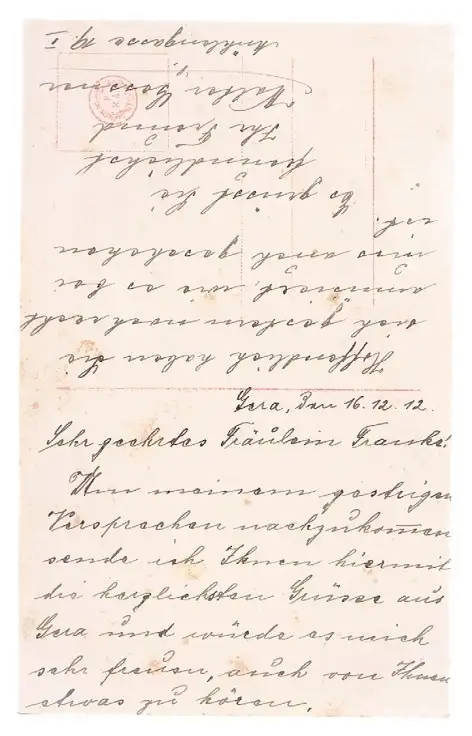 Gera, den 16.12.12.
Sehr geehrtes Fräulein Franke!
Um meinem gestrigen
Versprechen nachzukommen
sende ich Ihnen hiermit
die herzlichsten Grüsse aus
Gera und würde es mich
sehr freuen, auch von Ihnen
etwas zu hören.
Hoffendlich haben Sie
sich gestern noch recht
amüsiert, wie es bei
uns auch geschehen
ist.
Es grüsst Sie
freundlichst
Ihr Freund
Walter
19 I